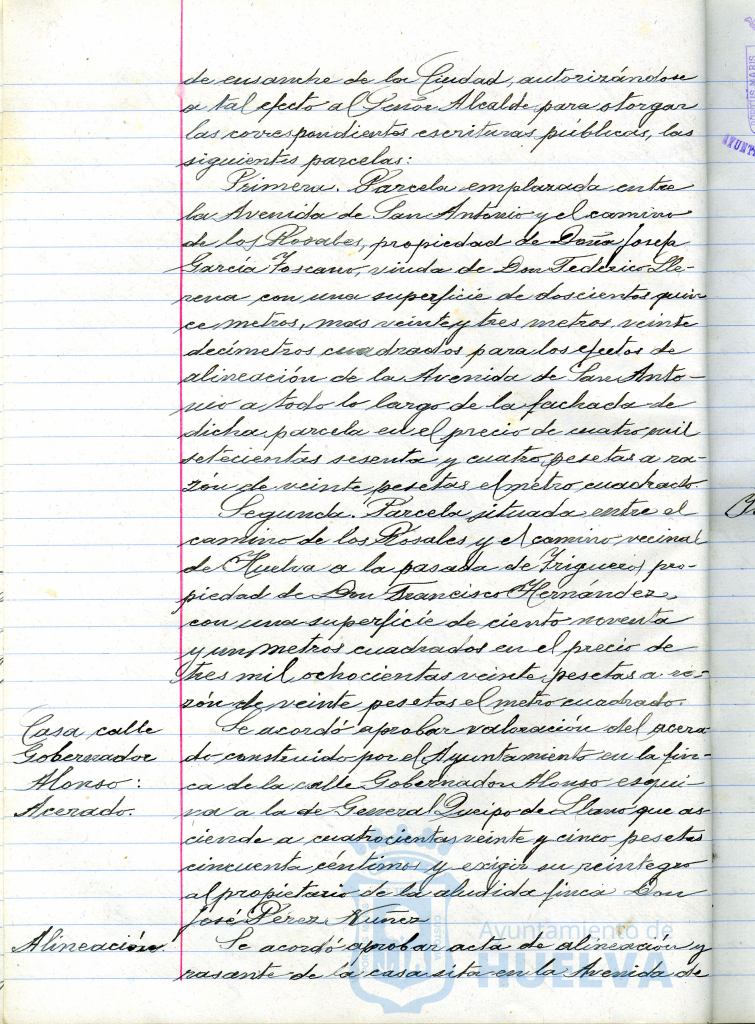 de ensanche de la Ciudad, autorizándose
a tal efecto al Señor Alcalde para otorgar
las correspondientes escrituras públicas, las
siguientes parcelas:
Primera. Parcela emplazada entre
la Avenida de San Antonio y el camino
de los Rosales, propiedad de Doña Josefa
García Toscano, viuda de Don Federico Lle-
rena con una superficie de doscientos quin-
ce metros, mas veinte y tres metros, veinte
decímetros cuadrados para los efectos de
alineación de la Avenida de San Anto-
nio a todo lo largo de la fachada de
dicha parcela en el precio de cuatro mil
setecientas sesenta y cuatro pesetas a ra-
zón de veinte pesetas el metro cuadrado.
Segunda. Parcela situada entre el
camino de los Rosales y el camino vecinal
de Huelva a la pasada de Trigueros, pro-
piedad de Don Francisco Hernández,
con una superficie de ciento noventa
y un metros cuadrados en el precio de
tres mil ochocientas veinte pesetas a ra-
zón de veinte pesetas el metro cuadrado.
Casa calle
Gobernador
Alonso:
Acerado.
Se acordó aprobar valoración del acera-
do construido por el Ayuntamiento en la fin-
ca de la calle Gobernador Alonso esqui-
na a la de General Queipo de Llano que as-
ciende a cuatrocientas veinte y cinco pesetas
cincuenta céntimos y exigir su reintegro
al propietario de la aludida finca Don
José Pérez Núñez
Alineación.
Se acordó aprobar acta de alineación y
rasante de la casa sita en la Avenida de
Ayuntamiento de
HUELVA